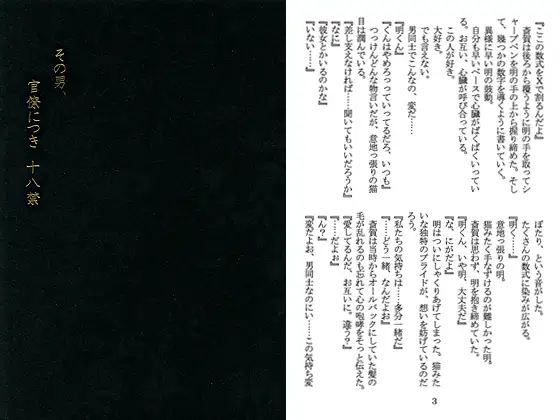 その男、
官僚につき 十八禁
『ここの数式をXで割るんだよ』
斎賀は後ろから覆うように明の手を取ってシ
ャープペンを明の手の上から握り締めた。そし
て、幾つかの数字を導くように書いていく。
異様に早い明の鼓動。
自分も早いペースで心臓がばくばくいってい
る。お互い、心臓が呼び合っている。
この人が好き。
大好き。
でも言えない。
男同士でこんなの、変だ……
『明くん』
『くんはやめろっていってるだろ、いつも』
つっけんどんな物言いだが、意地っ張りの猫
目は潤んでいる。
『差し支えなければ……聞いてもいいだろうか』
『なに』
『彼女とかいるのかな』
『いない……』
ぽたり、という音がした。
たくさんの数式に染みが広がる。
『明く……』
意地っ張りの明。
猫みたく手なずけるのが難しかった明。
斎賀は思わず、明を抱き締めていた。
『明くん、いや明、大丈夫だ』
『な、にがだよ』
明はついにしゃくりあげてしまった。猫みた
いな独特のプライドが、想いを妨げているのだ
ろう。
『私たちの気持ちは……多分一緒だ』
『……どう一緒、なんだよお』
斎賀は当時からオールバックにしていた髪の
毛が乱れるのも忘れて心の咆哮をそっと伝えた。
『愛してるんだ、お互いに。違う？』
『……だよお』
『ん？』
『変だよお、男同士なのにい……この気持ち変
3